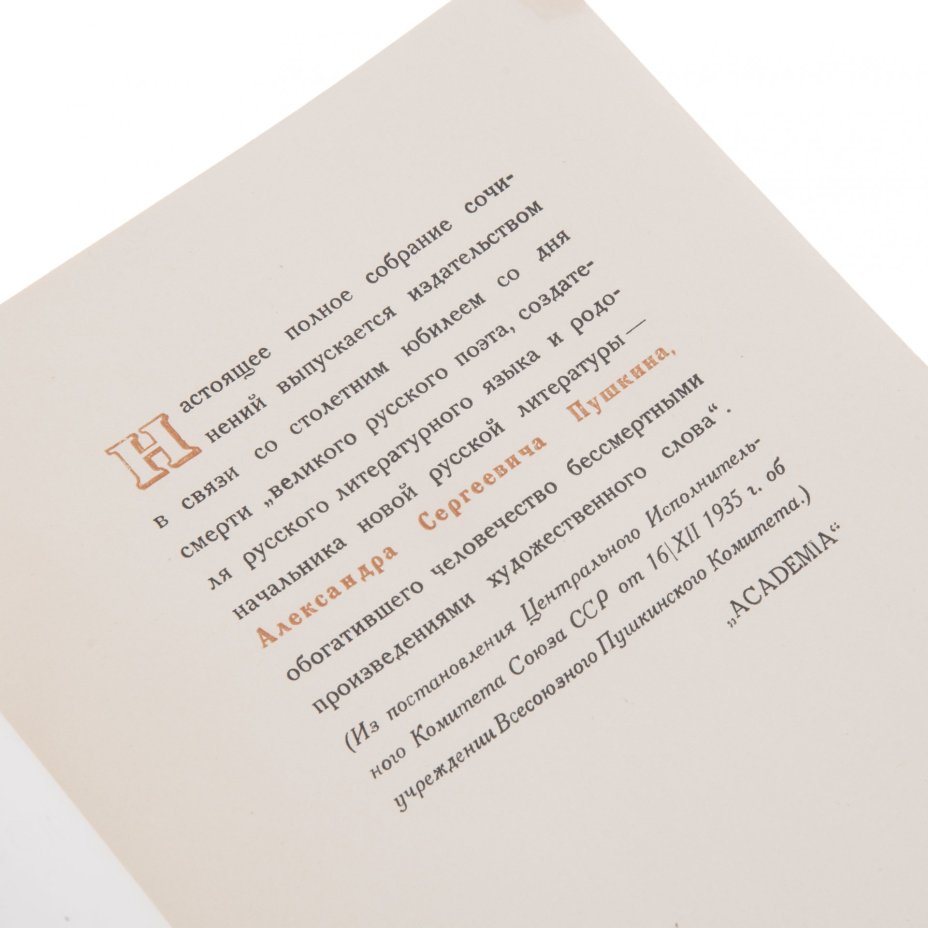 Настоящее полное собрание сочи-
нений выпускается издательством
в связи со столетним юбилеем со дня
смерти „великого русского поэта, создате-
ля русского литературного языка и родо-
начальника новой русской литературы —
Александра Сергеевича Пушкина,
обогатившего человечество бессмертными
произведениями художественного слова“.
(Из постановления Центрального Исполнитель-
ного Комитета Союза ССР от 16|XII 1935 г. об
учреждении Всесоюзного Пушкинского Комитета.)
„ACADEMIA“